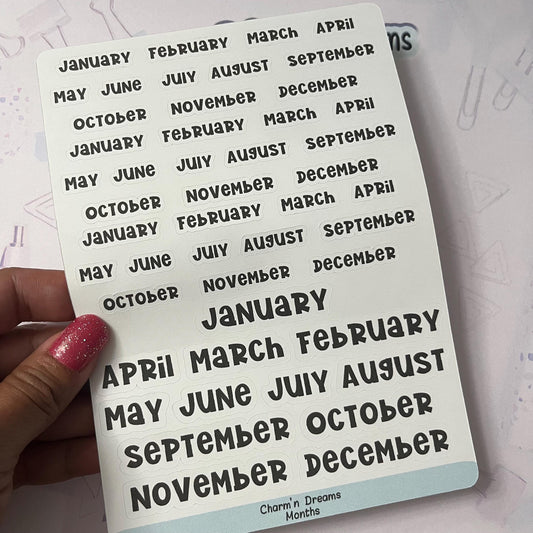 January February March April
May June July August September
October November December
January February March April
May June July August September
October November December
January February March April
May June July August September
October November December
January
April March February
May June July August
September October
November December
Charm'n Dreams
Months